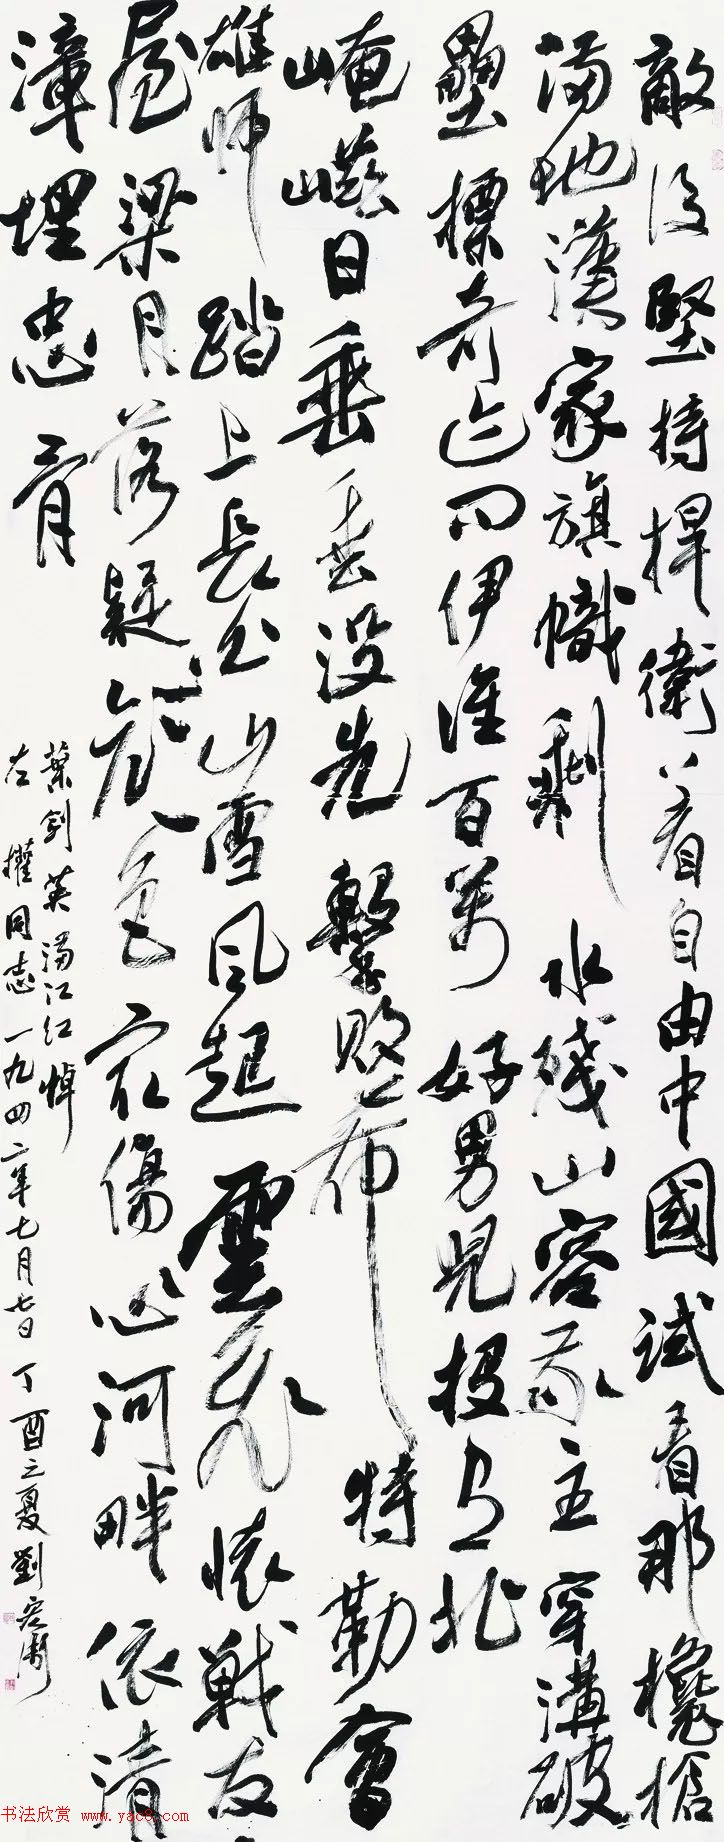 敵後堅持捍衛着自由中國試看那欃槍
滿地漢家旗幟剩水殘山容我主穿溝破
壘標奇迹問伊誰百萬好男兒投有北
崦嵫日垂垂沒先擊敗希特勒會
雄師踏上長白山雪風起雲飛懷戰友
屋梁月落疑顏色最傷心河畔依清
漳埋忠骨
葉劍英滿江红悼
左權同志一九四二年七月七日丁酉之夏劉
书法欣赏 www.yac8.com